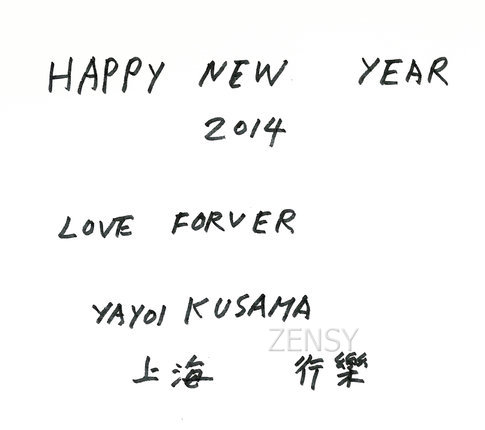 HAPPY NEW YEAR
2014
LOVE FORVER
YAYOI KUSAMA
ZENSY
上海 行樂